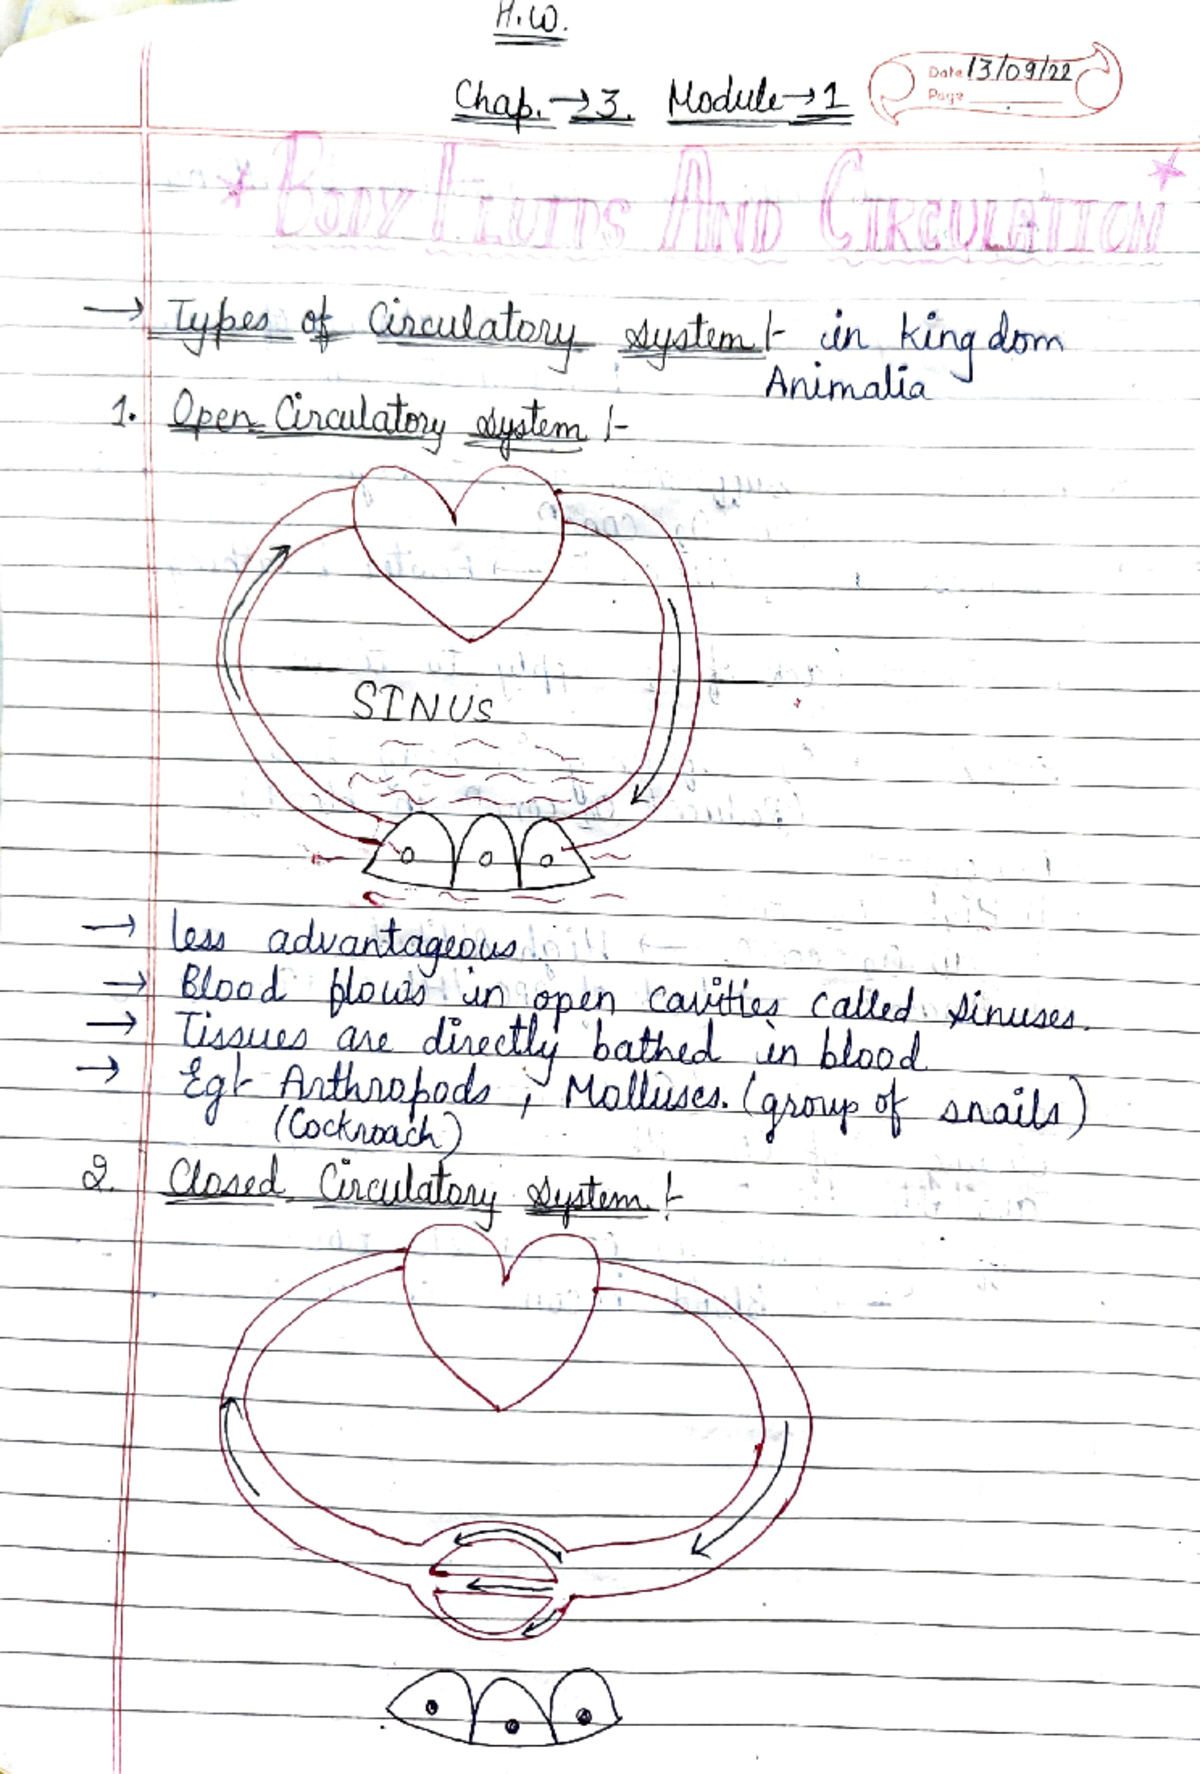 H.W.
Chap. → 3. Module → 1
Date 13/09/22
Page
* BODY FLUIDS AND CIRCULATION *
→ Types of Circulatory system :- in kingdom
Animalia
1. Open Circulatory system :-
SINUS
→ less advantageous
→ Blood flows in open cavities called sinuses.
→ Tissues are directly bathed in blood
→ Eg:- Arthropods, Molluscs. (group of snails)
(Cockroach)
2. Closed Circulatory system :-